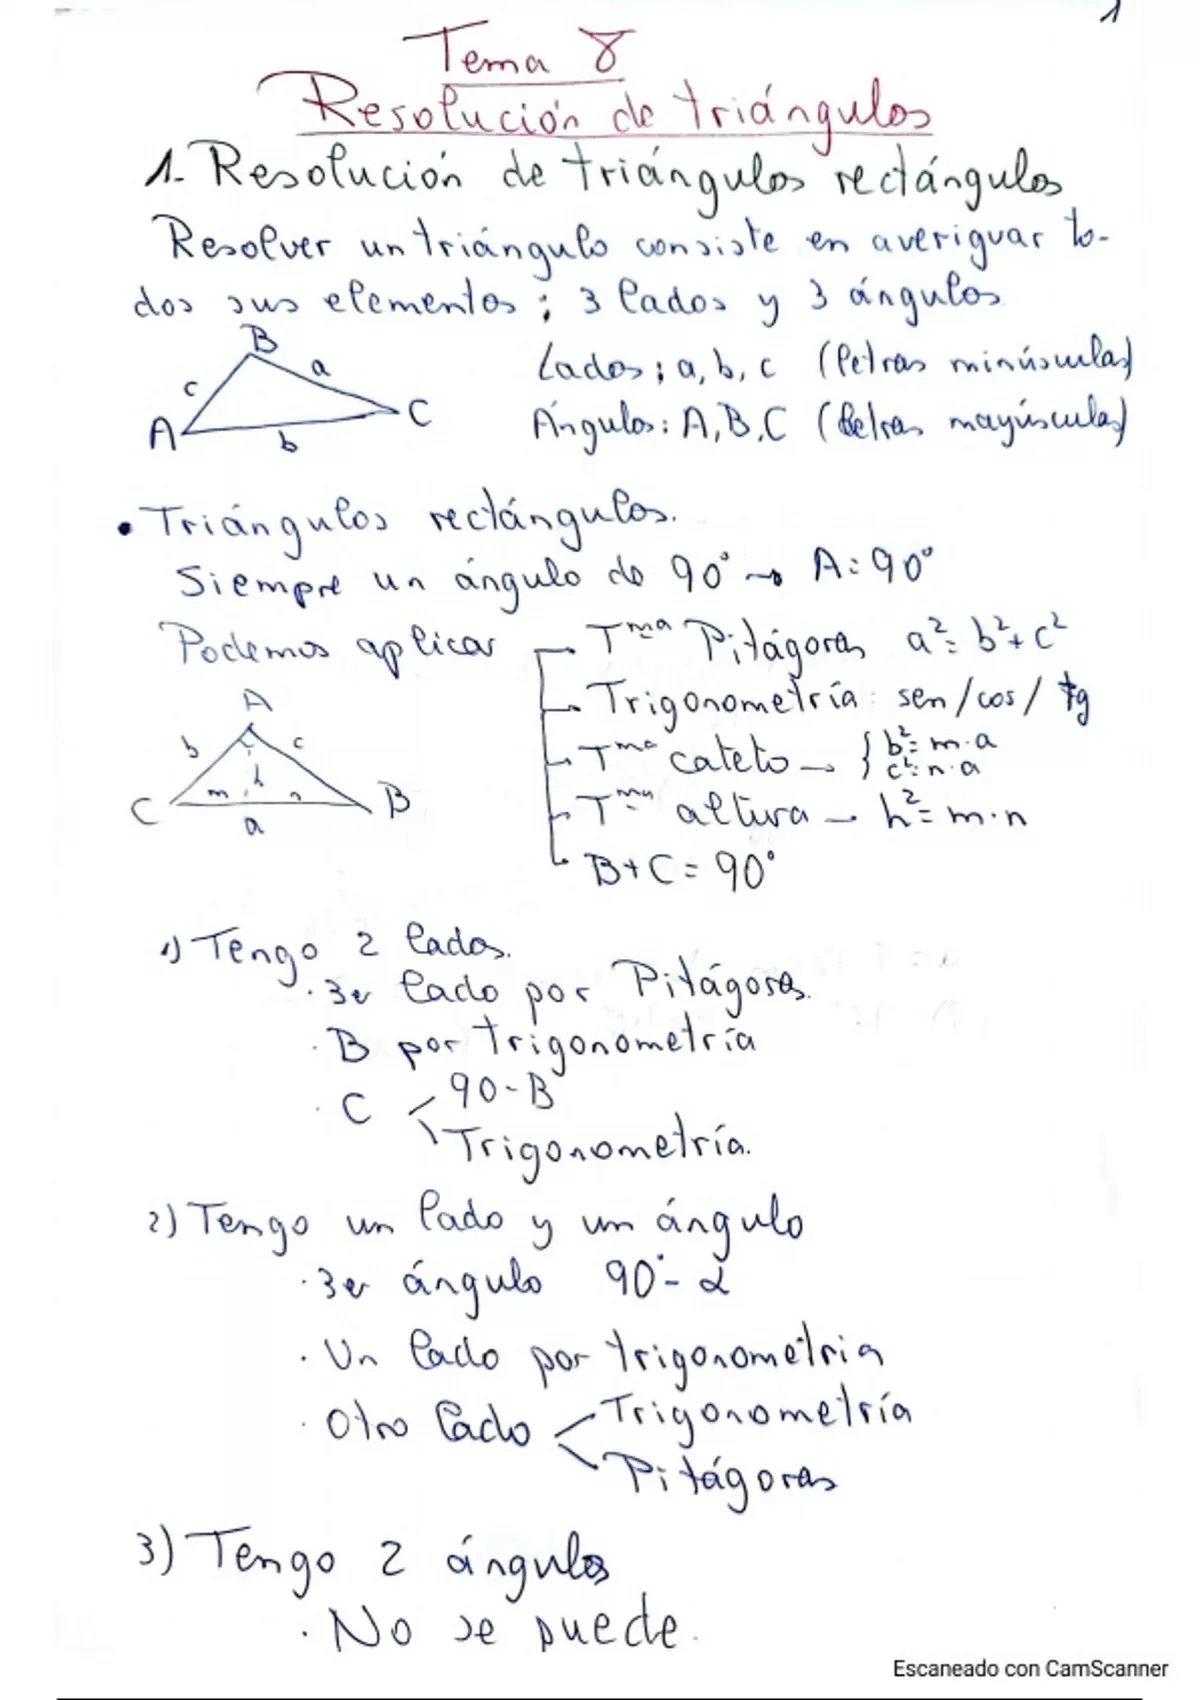 1
Tema 8
Resolución de triángulos
1- Resolución de triángulos rectángulos
Resolver un triángulo consiste en averiguar to-
dos sus elementos: 3 lados y 3 ángulos.
B
c a
A b C
Lados: a, b, c (letras minúsculas)
Ángulos: A, B, C (letras mayúsculas)
• Triángulos rectángulos.
Siempre un ángulo de 90° → A=90°
Podemos aplicar
Tma Pitágoras a²=b²+c²
Trigonometría: sen/cos/tg
Tma cateto → { b²=m·a
c²=n·a
Tma altura → h²=m·n
B+C=90°
A
b c
h
m n
C B
a
1) Tengo 2 lados.
· 3er lado por Pitágoras.
· B por trigonometría
· C < 90-B
Trigonometría.
2) Tengo un lado y un ángulo
· 3er ángulo 90°-α
· Un lado por trigonometria
· Otro lado < Trigonometría
Pitágoras
3) Tengo 2 ángulos
· No se puede.
Escaneado con CamScanner